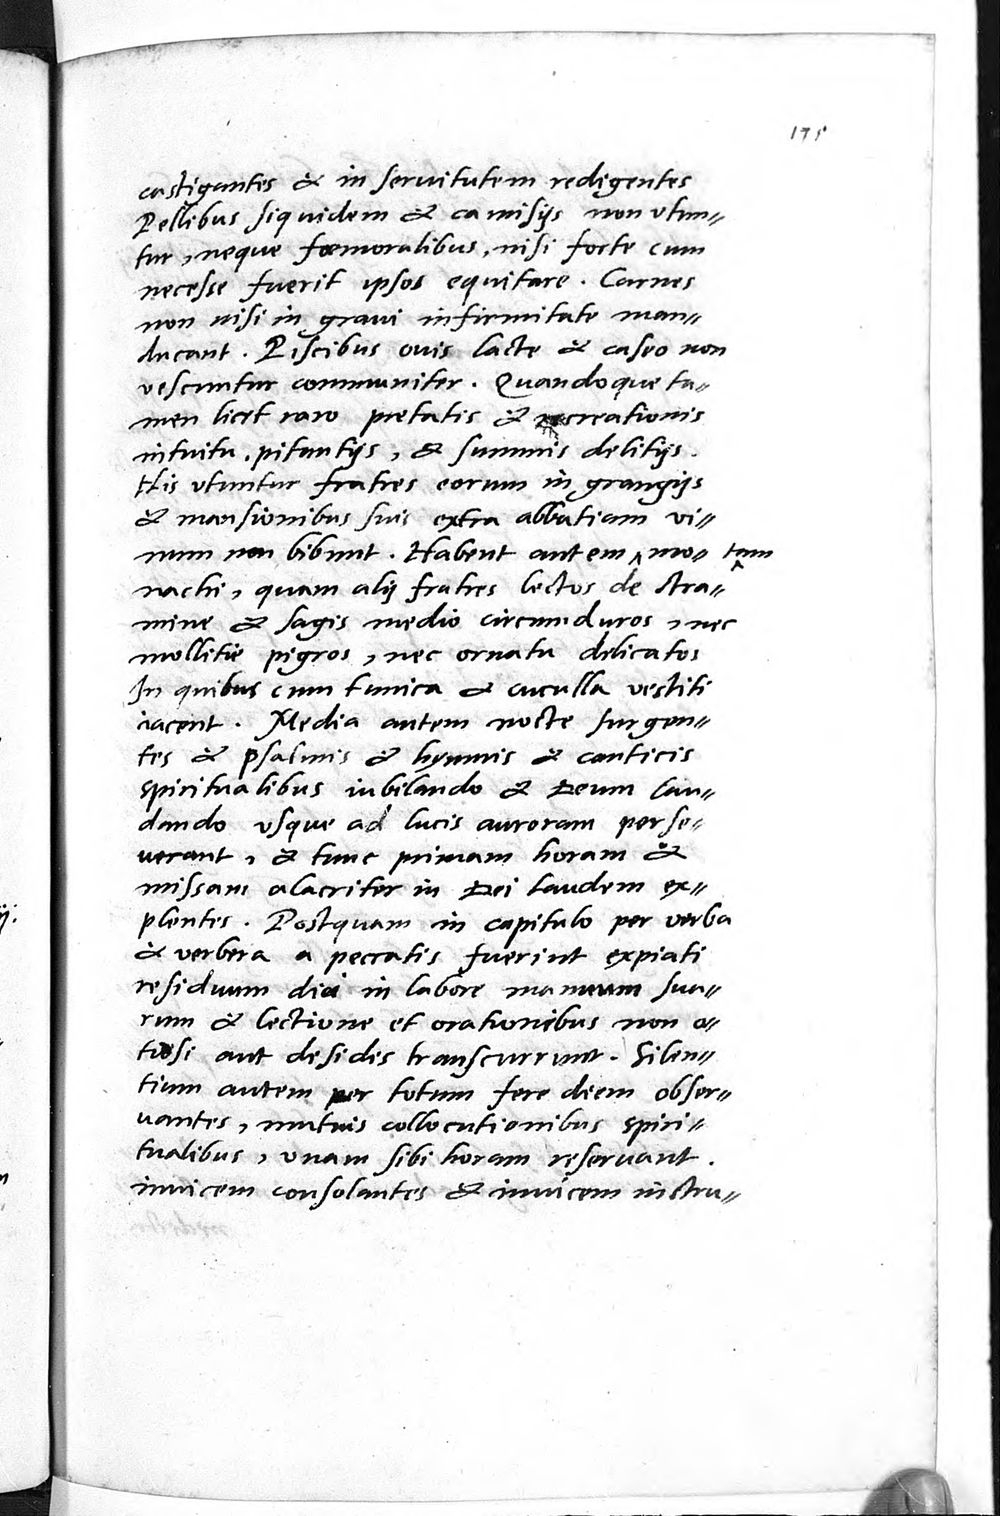 175
castigantes & in seruitutem redigentes
Pellibus siquidem & camisijs non vtun„
tur, neque foemoralibus, nisi forte cum
necesse fuerit ipsos equitare. Carnes
non nisi in graui infirmitate man„
ducant. Piscibus ouis lacte & caseo non
vescuntur communiter. Quandoque ta„
men licet raro pietatis & recreationis
intuitu, pitantijs, & summis delitijs.
His vtuntur fratres eorum in grangijs
& mansionibus suis extra abbatiam vi„
num non bibunt. Habent autem ‸ mo„ ‸tam
nachi, quam alij fratres lectos de stra„
mine & sagis medio circumduros, nec
mollitie pigros, nec ornatu delicatos
In quibus cum tunica & cuculla vestiti
iacent. Media autem nocte surgen„
tes & psalmis & hymnis & canticis
spiritualibus iubilando & Deum lau„
dando vsque ad lucis auroram perse„
uerant, & tunc primam horam &
missam alacriter in Dei laudem ex„
plentes. Postquam in capitulo per verba
& verbera a peccatis fuerint expiati
residuum diei in labore manuum sua„
rum & lectione et orationibus non o„
tiosi aut desides transcurrunt. Silen„
tium autem per totum fere diem obser„
uantes, mutuis collocutionibus spiri„
tualibus, vnam sibi horam reseruant.
inuicem consolantes & inuicem instru„